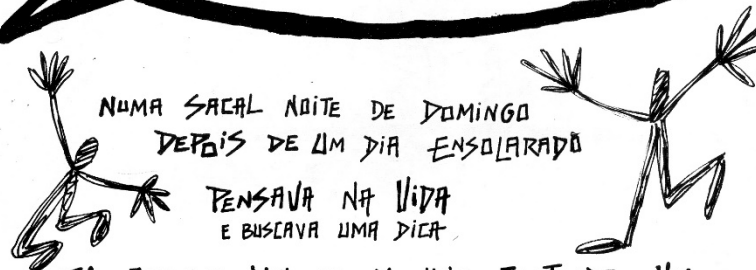 NUMA SACAL NOITE DE DOMINGO
DEPOIS DE UM DIA ENSOLARADO
PENSAVA NA VIDA
E BUSCAVA UMA DICA